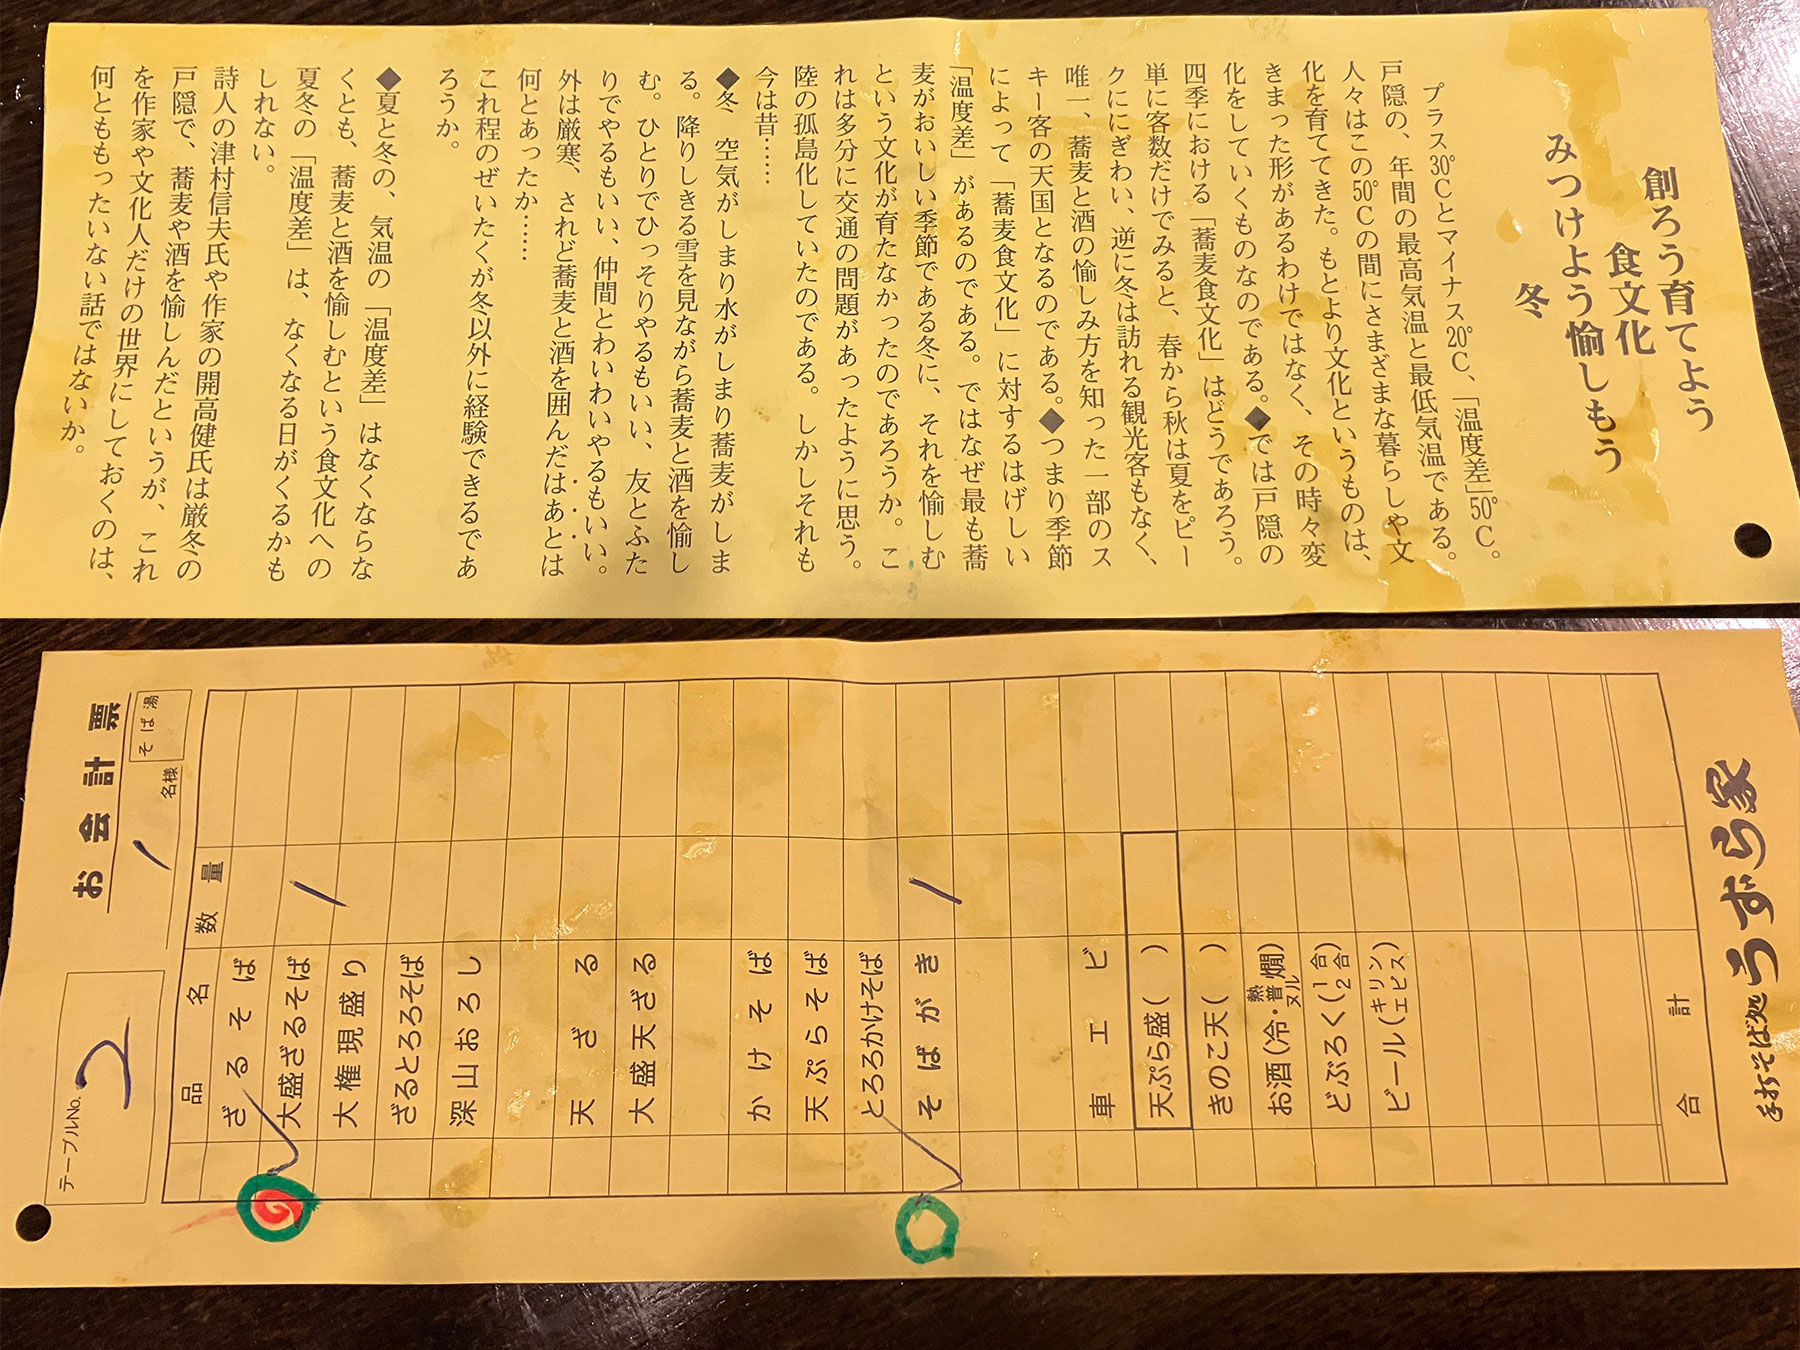 創ろう育てよう
食文化
みつけよう愉しもう
冬
プラス30℃とマイナス20℃、「温度差」50℃。
戸隠の、年間の最高気温と最低気温である。
人々はこの50℃の間にさまざまな暮らしや文
化を育ててきた。もとより文化というものは、
きまった形があるわけではなく、その時々変
化をしていくものなのである。◆では戸隠の
四季における「蕎麦食文化」はどうであろう。
単に客数だけでみると、春から秋は夏をピー
クににぎわい、逆に冬は訪れる観光客もなく、
唯一、蕎麦と酒の愉しみ方を知った一部のス
キー客の天国となるのである。◆つまり季節
によって「蕎麦食文化」に対するはげしい
「温度差」があるのである。ではなぜ最も蕎
麦がおいしい季節である冬に、それを愉しむ
という文化が育たなかったのであろうか。こ
れは多分に交通の問題があったように思う。
陸の孤島化していたのである。しかしそれも
今は昔……
◆冬　空気がしまり水がしまり蕎麦がしま
る。降りしきる雪を見ながら蕎麦と酒を愉し
む。ひとりでひっそりやるもいい、友とふた
りでやるもいい、仲間とわいわいやるもいい。
外は厳寒、されど蕎麦と酒を囲んだはあとは
何とあったか……
これ程のぜいたくが冬以外に経験できるであ
ろうか。
◆夏と冬の、気温の「温度差」はなくならな
くとも、蕎麦と酒を愉しむという食文化への
夏冬の「温度差」は、なくなる日がくるかも
しれない。
詩人の津村信夫氏や作家の開高健氏は厳冬の
戸隠で、蕎麦や酒を愉しんだというが、これ
を作家や文化人だけの世界にしておくのは、
何とももったいない話ではないか。
お会計票
テーブルNo.
2
1
名様
そば湯
品名
数量
ざるそば
大盛ざるそば
1
大権現盛り
ざるとろろそば
深山おろし
天ざる
大盛天ざる
かけそば
天ぷらそば
とろろかけそば
そばがき
1
車エビ
天ぷら盛(　)
きのこ天(　)
お酒(冷・熱・普・ヌル燗)
どぶろく(1合 2合)
ビール(キリン ヱビス)
合計
手打そば処 うずら家